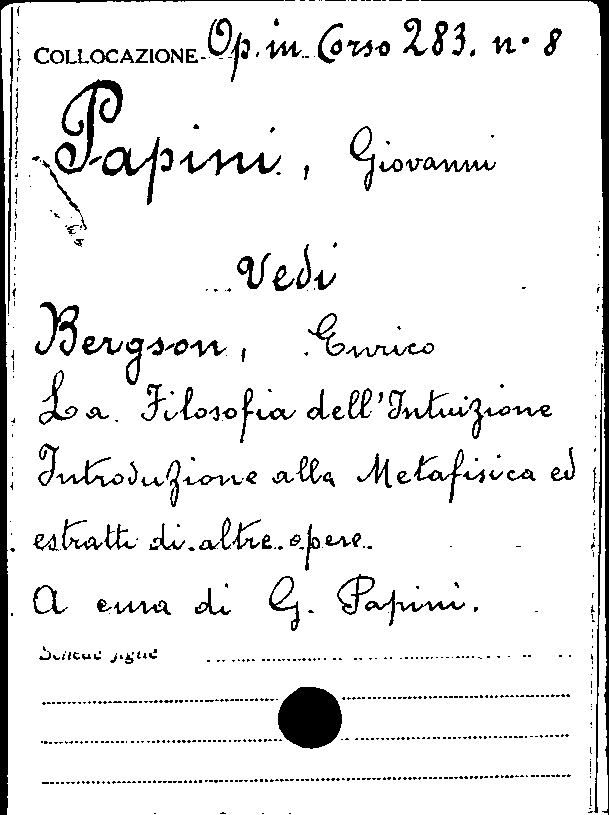 COLLOCAZIONE Op. in Corso 283. n. 8
Papini, Giovanni
Vedi
Bergson, Enrico
La Filosofia dell'Intuizione
Introduzione alla Metafisica ed
estratti di altre opere.
A cura di G. Papini.
Schede figlie